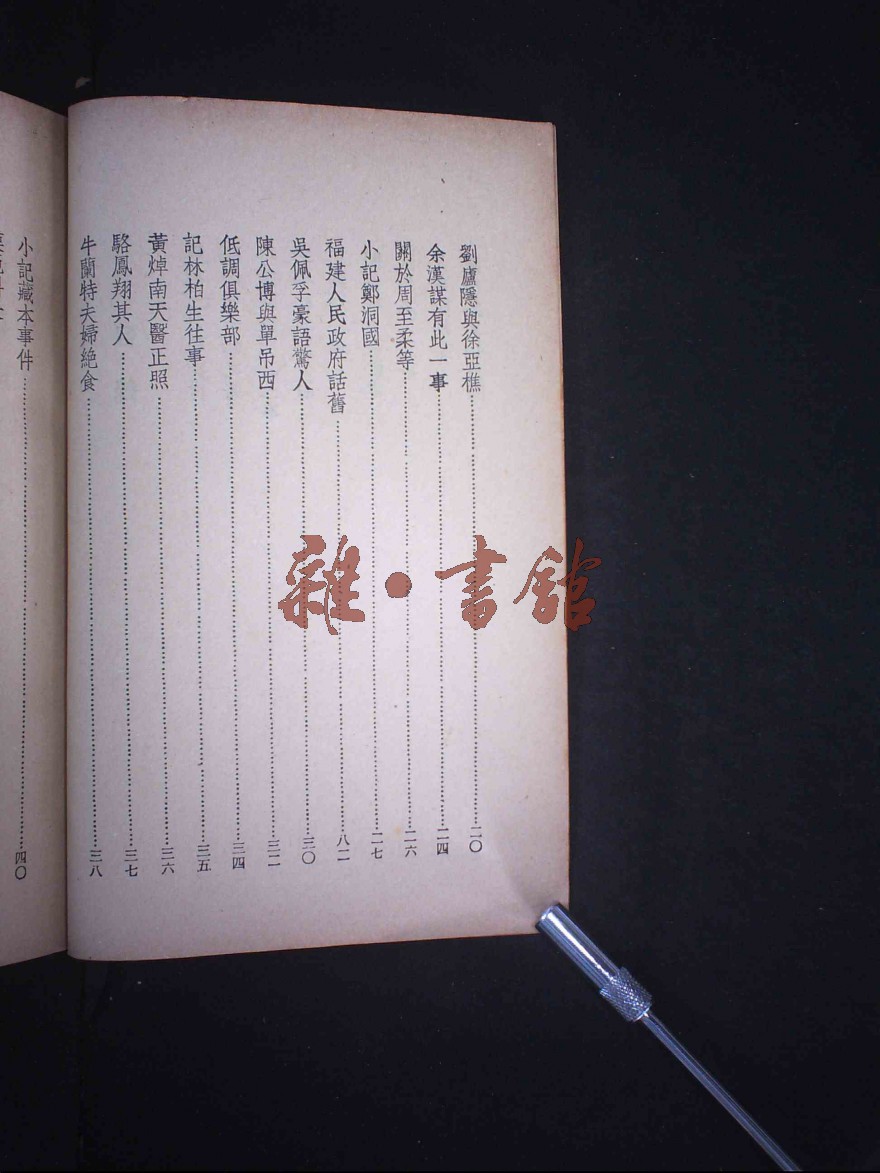 劉廬隱與徐亞樵……二〇
余漢謀有此一事……二四
關於周至柔等……二六
小記鄭洞國……二七
福建人民政府話舊……八二
吳佩孚豪語驚人……三〇
陳公博與單吊西……三二
低調俱樂部……三四
記林柏生往事……三五
黃焯南天醫正照……三六
駱鳳翔其人……三七
牛蘭特夫婦絶食……三八
小記藏本事件……四〇
雜·書館